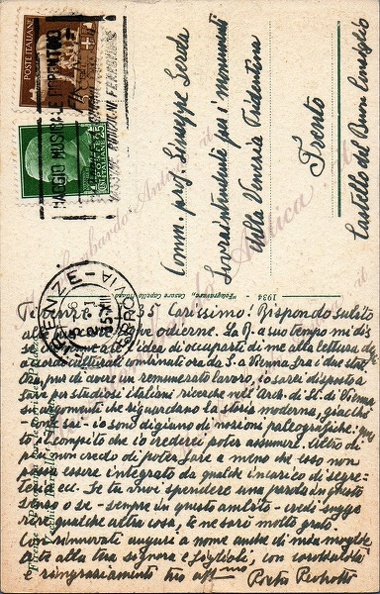 POSTE ITALIANE
MAGGIO MUSICALE FIORENTINO
25
FIRENZE - FERROVIA
Comm. prof. Giuseppe Gerola
Sovraintendente per i monumenti
della Venezia Tridentina
Trento
Castello del Buon Consiglio
1934
35 Carissimo! Rispondo subito
alle odierne. La a suo tempo mi dis
se l'idea di occuparti di me alla lettura
accordi culturali combinati ora da S. a Vienna fra i due stati.
Ora, pur di avere un remunerato lavoro, io sarei disposto a
fare per studiosi italiani ricerche nell'Arch. di St. di Vienna
su argomenti che riguardano la storia moderna, giacchè
- tu sai - io sono digiuno di nozioni paleografiche: que
sto, il compito che io crederei poter assumere. Altro di
più non credo di poter fare a meno che esso non
possa essere integrato da qualche incarico di segre-
teria ec. Se tu vuoi spendere una parola in questo
senso o se - sempre in questo ambito - credi sugge
rire qualche altra cosa, te ne sarò molto grato.
Con rinnovati auguri a nome anche di mia moglie
a te alla tua signora e figlioli, con cordialità
e ringraziamenti tuo aff.mo Pietro Pedrotti